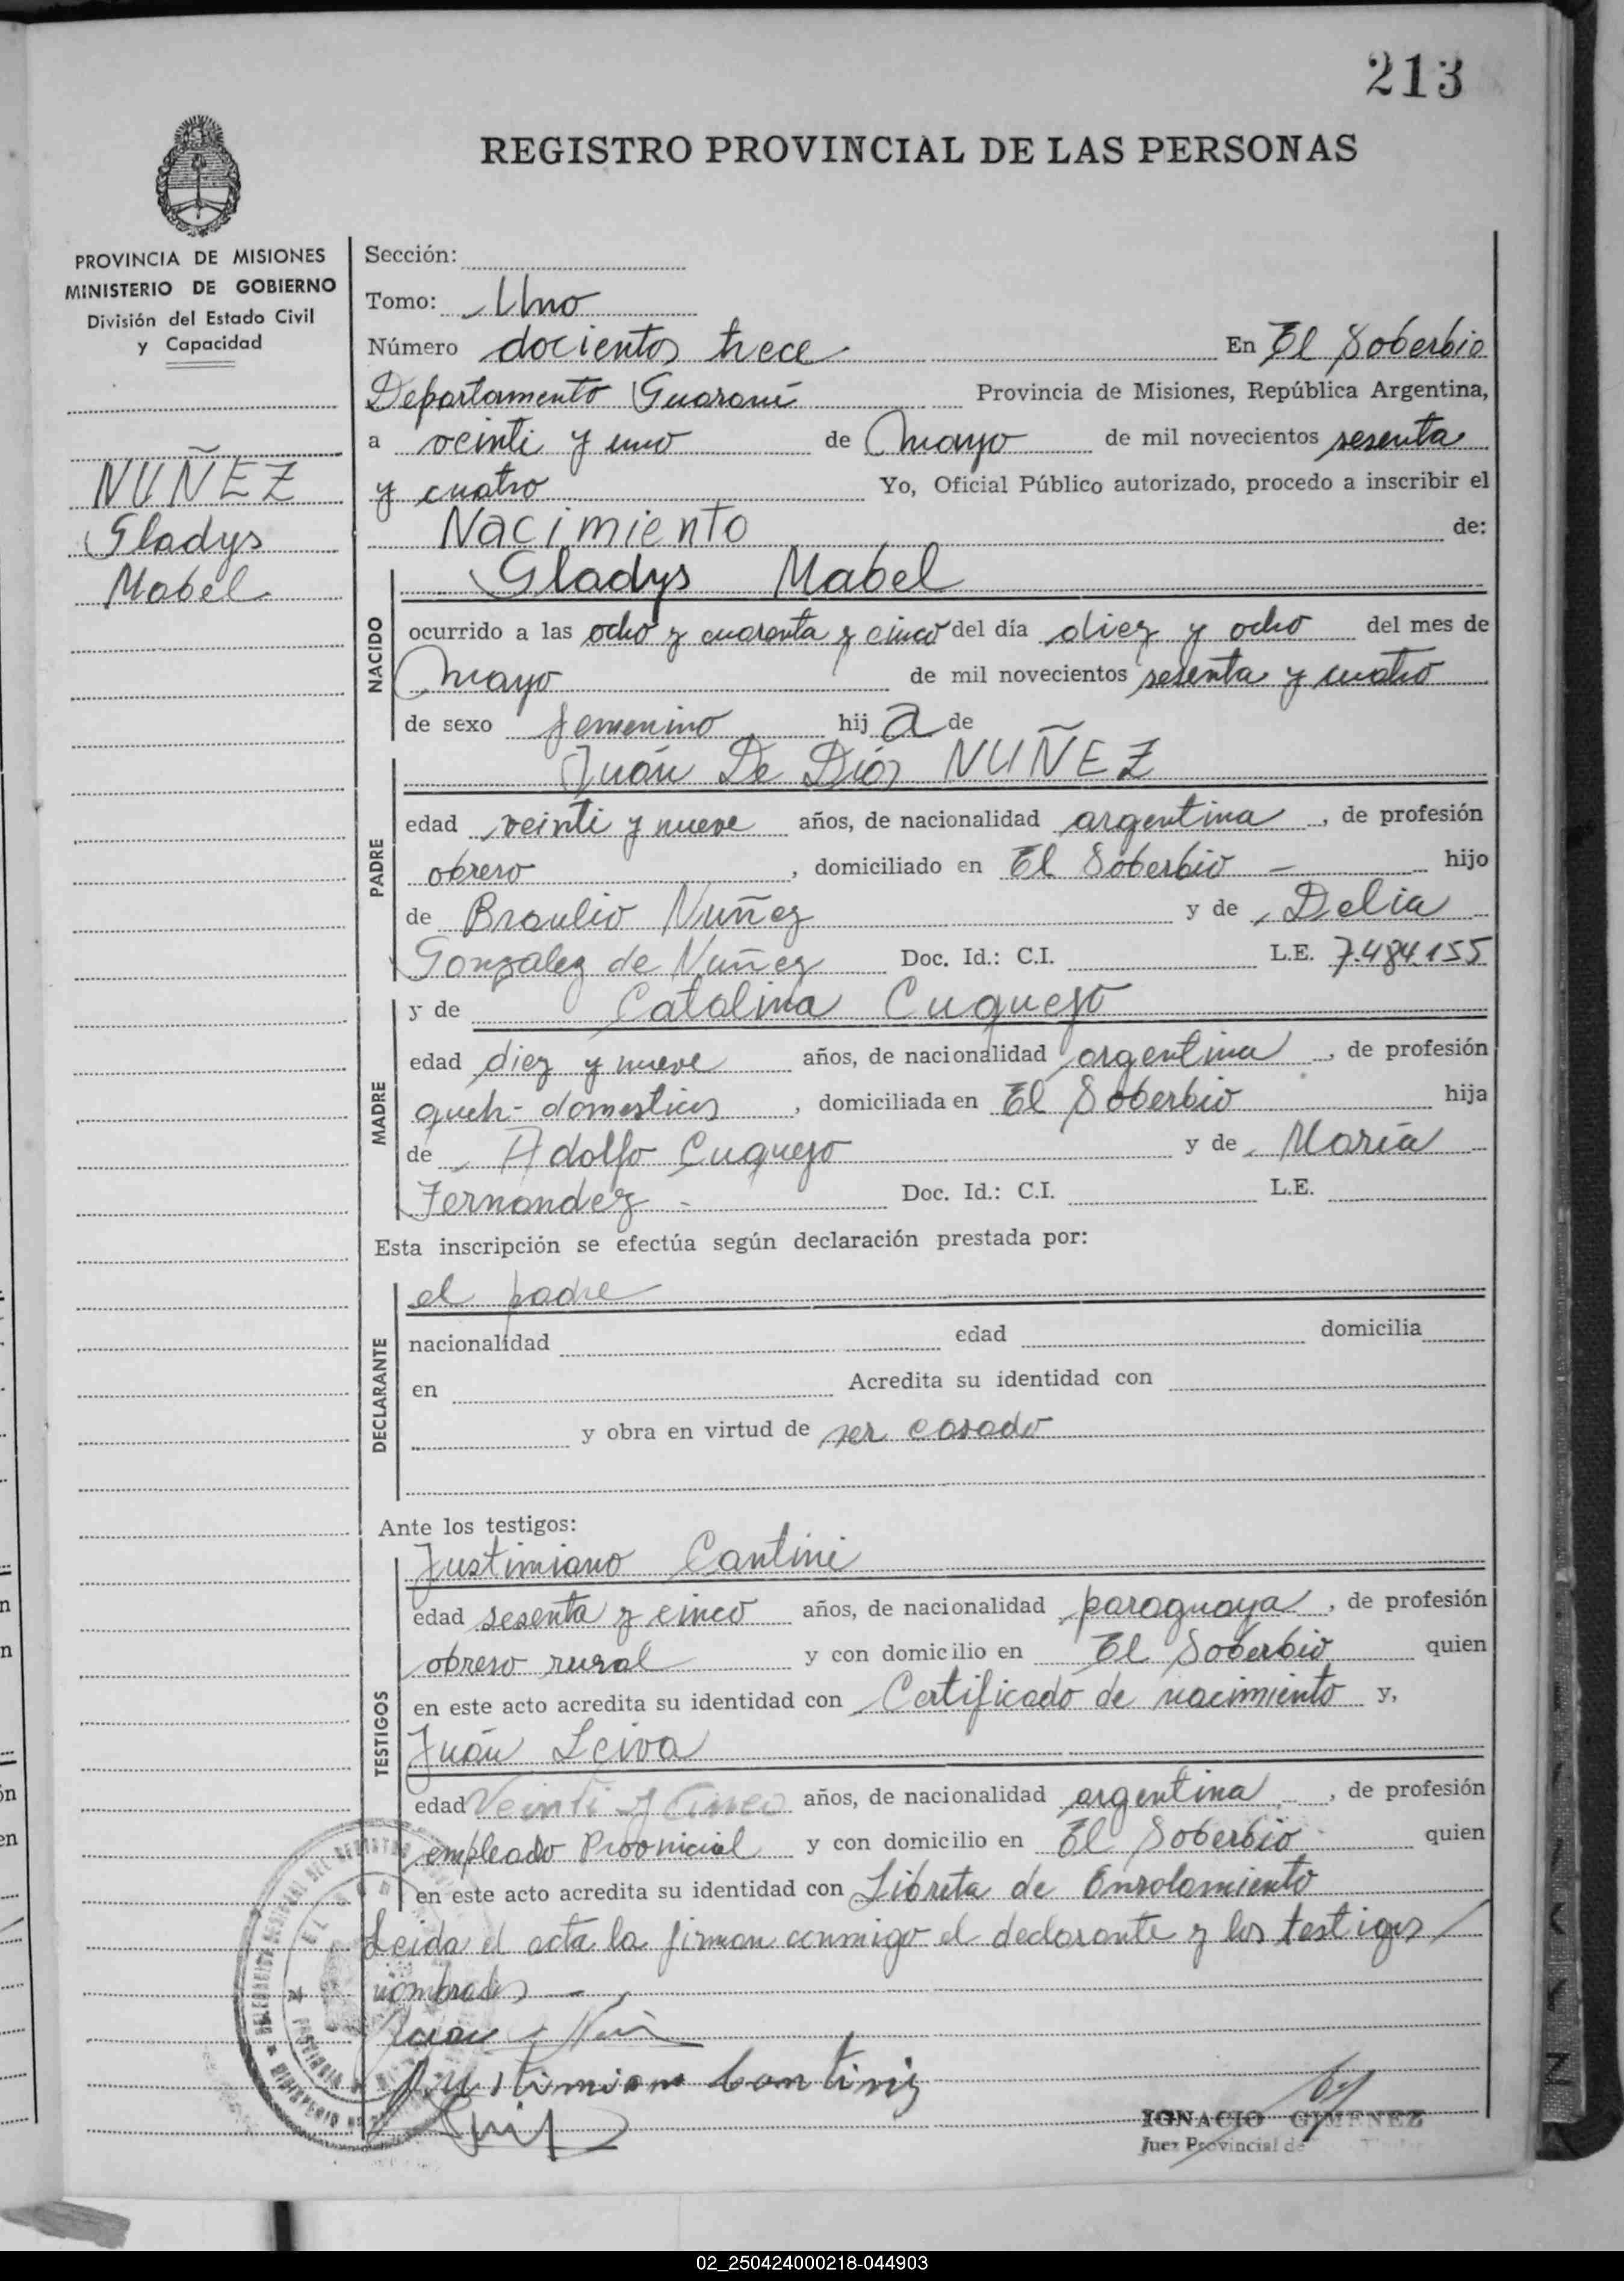 213
REGISTRO PROVINCIAL DE LAS PERSONAS
PROVINCIA DE MISIONES
MINISTERIO DE GOBIERNO
División del Estado Civil
y Capacidad
NUÑEZ
Gladys
Mabel
Sección:
Tomo: Uno
Número docientos trece En El Soberbio
Departamento Guaraní Provincia de Misiones, República Argentina,
a veinti y uno de Mayo de mil novecientos sesenta
y cuatro Yo, Oficial Público autorizado, procedo a inscribir el
Nacimiento de:
NACIDO
Gladys Mabel
ocurrido a las ocho y cuarenta y cinco del día diez y ocho del mes de
Mayo de mil novecientos sesenta y cuatro
de sexo femenino hij a de
PADRE
Juán De Dios NUÑEZ
edad veinti y nueve años, de nacionalidad argentina, de profesión
obrero, domiciliado en El Soberbio - hijo
de Braulio Nuñez y de Delia
Gonzalez de Nuñez Doc. Id.: C.I. L.E. 7.484.155
MADRE
y de Catalina Cuquejo
edad diez y nueve años, de nacionalidad argentina, de profesión
queh- domesticos, domiciliada en El Soberbio hija
de Adolfo Cuquejo y de María
Fernandez - Doc. Id.: C.I. L.E.
Esta inscripción se efectúa según declaración prestada por:
DECLARANTE
el padre
nacionalidad edad domicilia
en Acredita su identidad con
y obra en virtud de ser casado
Ante los testigos:
TESTIGOS
Justimiano Cantini
edad sesenta y cinco años, de nacionalidad paraguaya, de profesión
obrero rural y con domicilio en El Soberbio quien
en este acto acredita su identidad con Certificado de nacimiento y,
Juán Leiva
edad Veinti y Cinco años, de nacionalidad argentina, de profesión
empleado Provincial y con domicilio en El Soberbio quien
en este acto acredita su identidad con Libreta de Enrolamiento
Leida el acta la firman conmigo el declarante y los testigos
nombrados -
Justimiano Cantini
IGNACIO GIMENEZ
Juez Provincial de
02_250424000218-044903